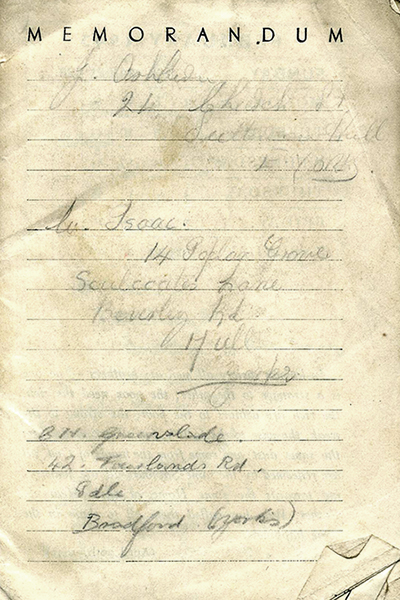 MEMORANDUM
24 Church St
Hull
E. Yorks
W. Isaac.
14 Poplar Grove
Sculcoates Lane
Beverley Rd
Hull
Yorks
B H. Greenslade.
42. Fairlands Rd.
Idle
Bradford (Yorks)